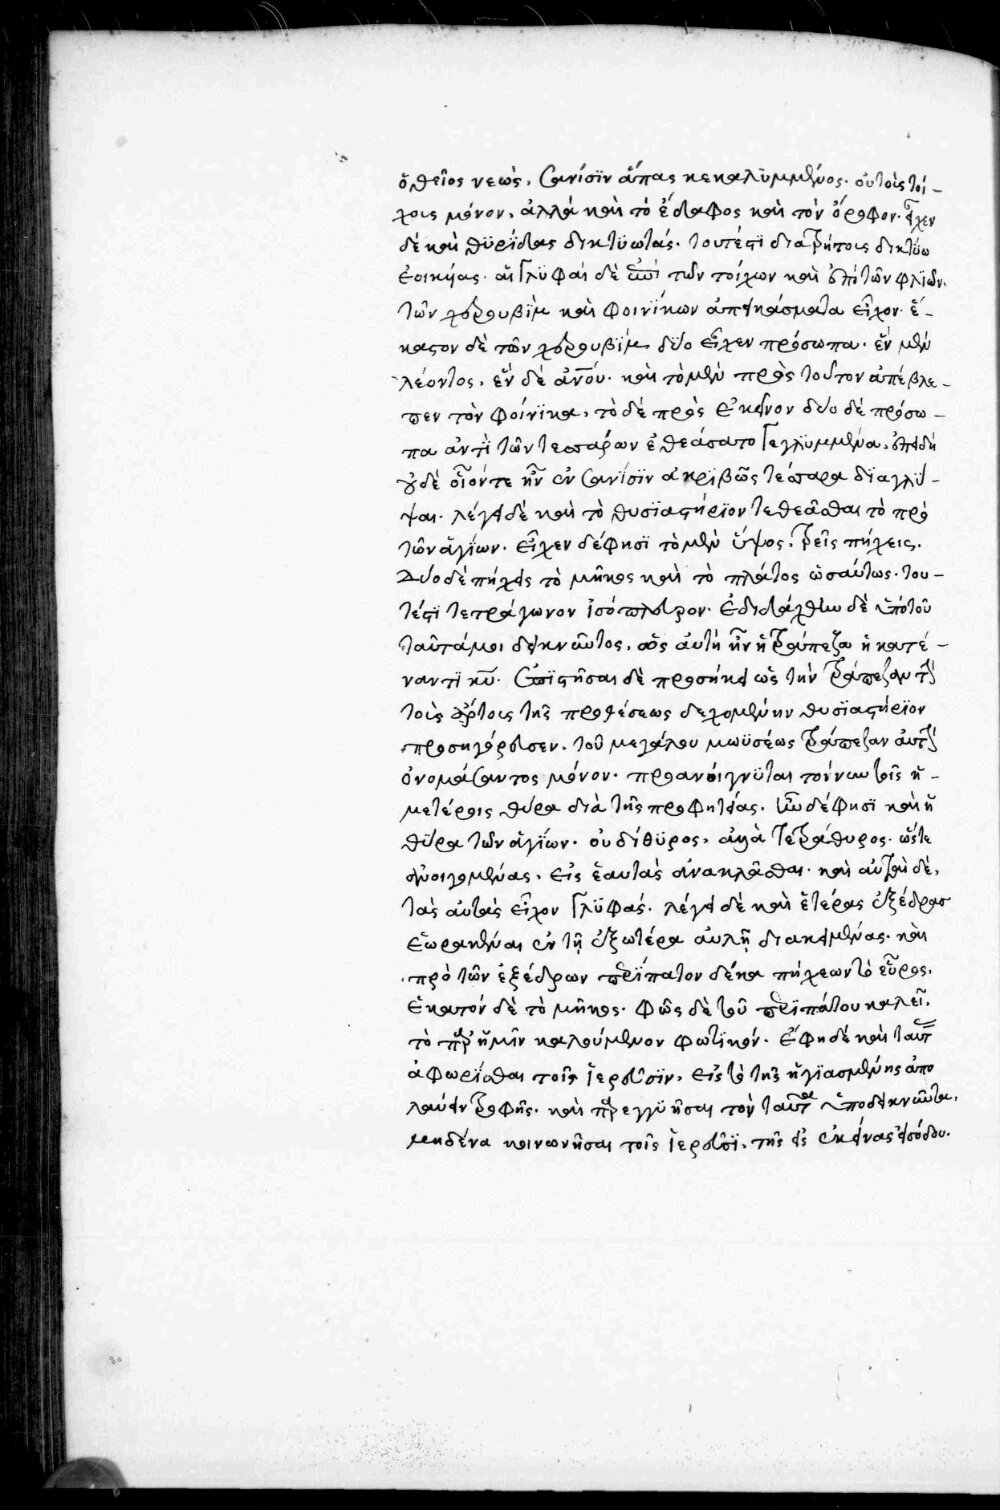 ὁ θεῖος νεὼς. σανίσϊν ἅπας κεκαλϋμμένος. οὐ τοῖς τοί-
χοις μόνον, ἀλλὰ καὶ τὸ ἔδαφος καὶ τὸν ὄροφον. εἶχεν
δὲ καὶ θϋρίδας δικτϋωτάς. τουτέστϊ διατρήτοις δικτύω
ἐοικυίας. αἱ γλϋφαὶ δὲ ἐπὶ τῶν τοίχων καὶ ἐπὶ τῶν φλϊῶν.
τῶν χερουβῒμ καὶ φοινΐκων ἀπεικάσματα εἶχον. ἕ-
καστον δὲ τῶν χερουβῒμ δύο εἶχεν πρόσωπα. ἓν μὲν
λέοντος, ἓν δὲ ἀνοῦ. καὶ τὸ μὲν πρὸς τοῦτον ἀπέβλε-
πεν τὸν φοίνϊκα, τὸ δὲ πρὸς ἐκεῖνον δύο δὲ πρόσω-
πα ἀντὶ τῶν τεσσάρων ἐθεάσατο γεγλϋμμένα. ἐπειδὴ
οὐδὲ οἷόντε ἦν ἐν σανΐσϊν ἀκρϊβῶς τέσσαρα δϊαγλύ-
ψαι. λέγει δὲ καὶ τὸ θυσϊαστήρϊον τεθεᾶσθαι τὸ πρὸ
τῶν ἁγίων. εἶχεν δέ φησϊ τὸ μὲν ὕψος, τρεῖς πήχεις.
δύο δὲ πήχεις τὸ μῆκος καὶ τὸ πλάτος ὡσαύτως. του-
τέστϊ τετράγωνον ἰσόπλευρον. ἐδιδάχθην δὲ ὑπὸ τοῦ
ταῦτά μοι δεικνῦντος, ὡς αὐτὴ ἦν ἡ τράπεζα ἡ κατέ-
ναντϊ κυ. ἐπϊστῆσαι δὲ προσήκει ὡς τὴν τράπεζαν τὴν
τοῖς ἄρτοις τῆς προθέσεως δεχομένην θυσϊαστήρϊον
προσηγόρευσεν. τοῦ μεγάλου μωϋσέως τράπεζαν αὐτὴν
ὀνομάσαντος μόνον. προανοίγνϋται τοίνυν ταῖς ἡ-
μετέραις θύρα διὰ τῆς προφητείας. ἦν δέ φησϊ καὶ ἡ
θύρα τῶν ἁγΐων. οὐ δίθϋρος, ἀλλὰ τετράθυρος. ὥστε
ἀνοιγομένας, εἰς ἑαυτὰς ἀνακλᾶσθαι. καὶ αὗται δὲ,
τὰς αὐτὰς εἶχον γλϋφάς. λέγει δὲ καὶ ἑτέρας ἐξέδρας
ἑωρακέναι ἐν τῇ ἐξωτέρα αὐλῇ διακειμένας. καὶ
πρὸ τῶν ἐξέδρων περΐπατον δέκα πήχεων τὸ εὖρος.
ἑκατόν δὲ τὸ μῆκος. φῶς δὲ τοῦ περϊπάτου καλεῖ,
τὸ παρ' ἡμῖν καλούμενον φωτϊκόν. ἔφη δὲ καὶ ταῦτα
ἀφωρΐσθαι τοῖς ἱερεῦσϊν, εἰς τὸ τῆς ἡγϊασμένης ἀπο
λαύειν τροφῆς. καὶ παρεγγϋῆσαι τὸν ταῦτα ὑποδεικνῦντα,
μηδένα κοινωνῆσαι τοῖς ἱερεῦσϊ. τῆς εἰς ἐκείνας εἰσόδου.